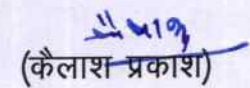 (कैलाश प्रकाश)